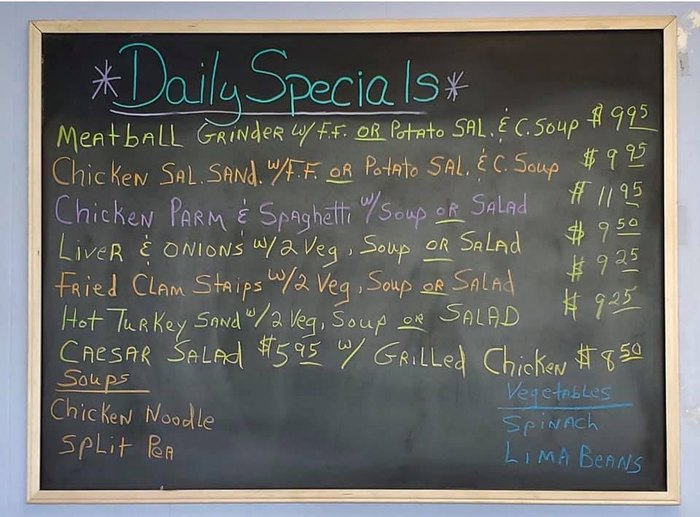 *Daily Specials*
Meatball Grinder w/ F.F. or Potato Sal. & C. Soup $9.95
Chicken Sal. Sand. w/F.F. or Potato Sal. & C. Soup $9.95
Chicken Parm & Spaghetti w/Soup or Salad $11.95
Liver & Onions w/2 Veg, Soup or Salad $9.50
Fried Clam Strips w/2 Veg, Soup or Salad $9.25
Hot Turkey Sand w/2 Veg, Soup or Salad $9.25
Caesar Salad $5.95 w/ Grilled Chicken $8.50
Soups
Chicken Noodle
Split Pea
Vegetables
Spinach
Lima Beans